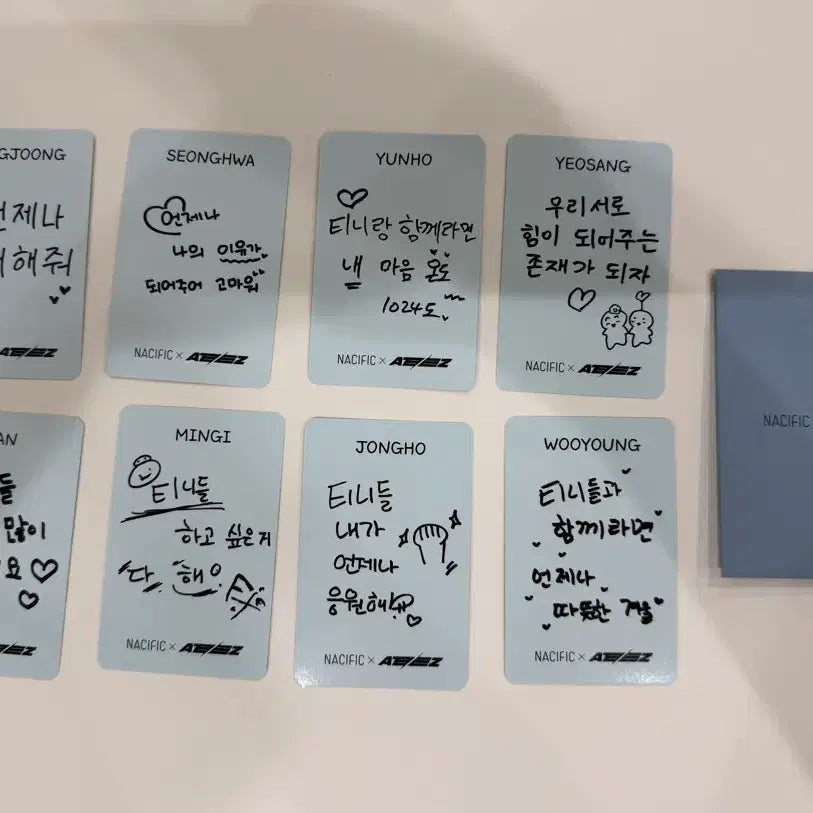 GJOONG
언제나
해줘
ATEEZ
SEONGHWA
언제나
나의 이유가
되어주어 고마워
NACIFIC × ATEEZ
YUNHO
티니랑 함께라면
내 마음 온도
1024도
NACIFIC × ATEEZ
YEOSANG
우리 서로
힘이 되어주는
존재가 되자
NACIFIC × ATEEZ
AN
들
많이
요
ATEEZ
MINGI
티니들
하고 싶은거
"다" "해"
NACIFIC × ATEEZ
JONGHO
티니들
내가
언제나
응원해
NACIFIC × ATEEZ
WOOYOUNG
티니들과
함께라면
언제나
따뜻한 겨울
NACIFIC × ATEEZ
NACIFIC